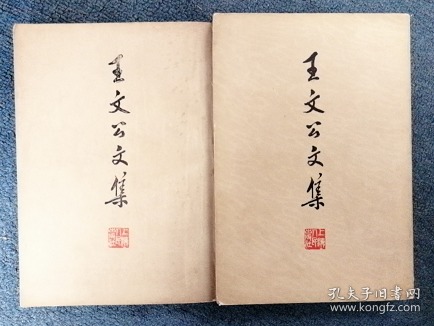 王文公文集
王文公文集
孔夫子旧书网
www.kongfz.com